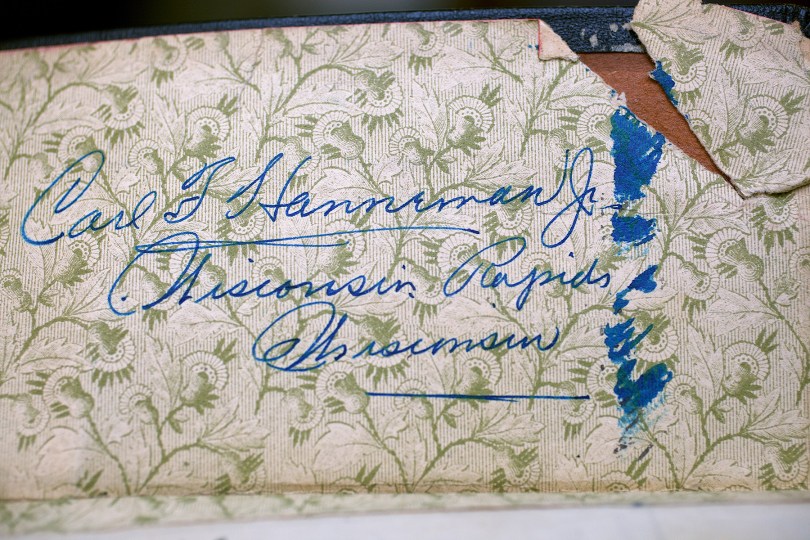 Carl F Hanneman Jr.
Wisconsin Rapids
Wisconsin